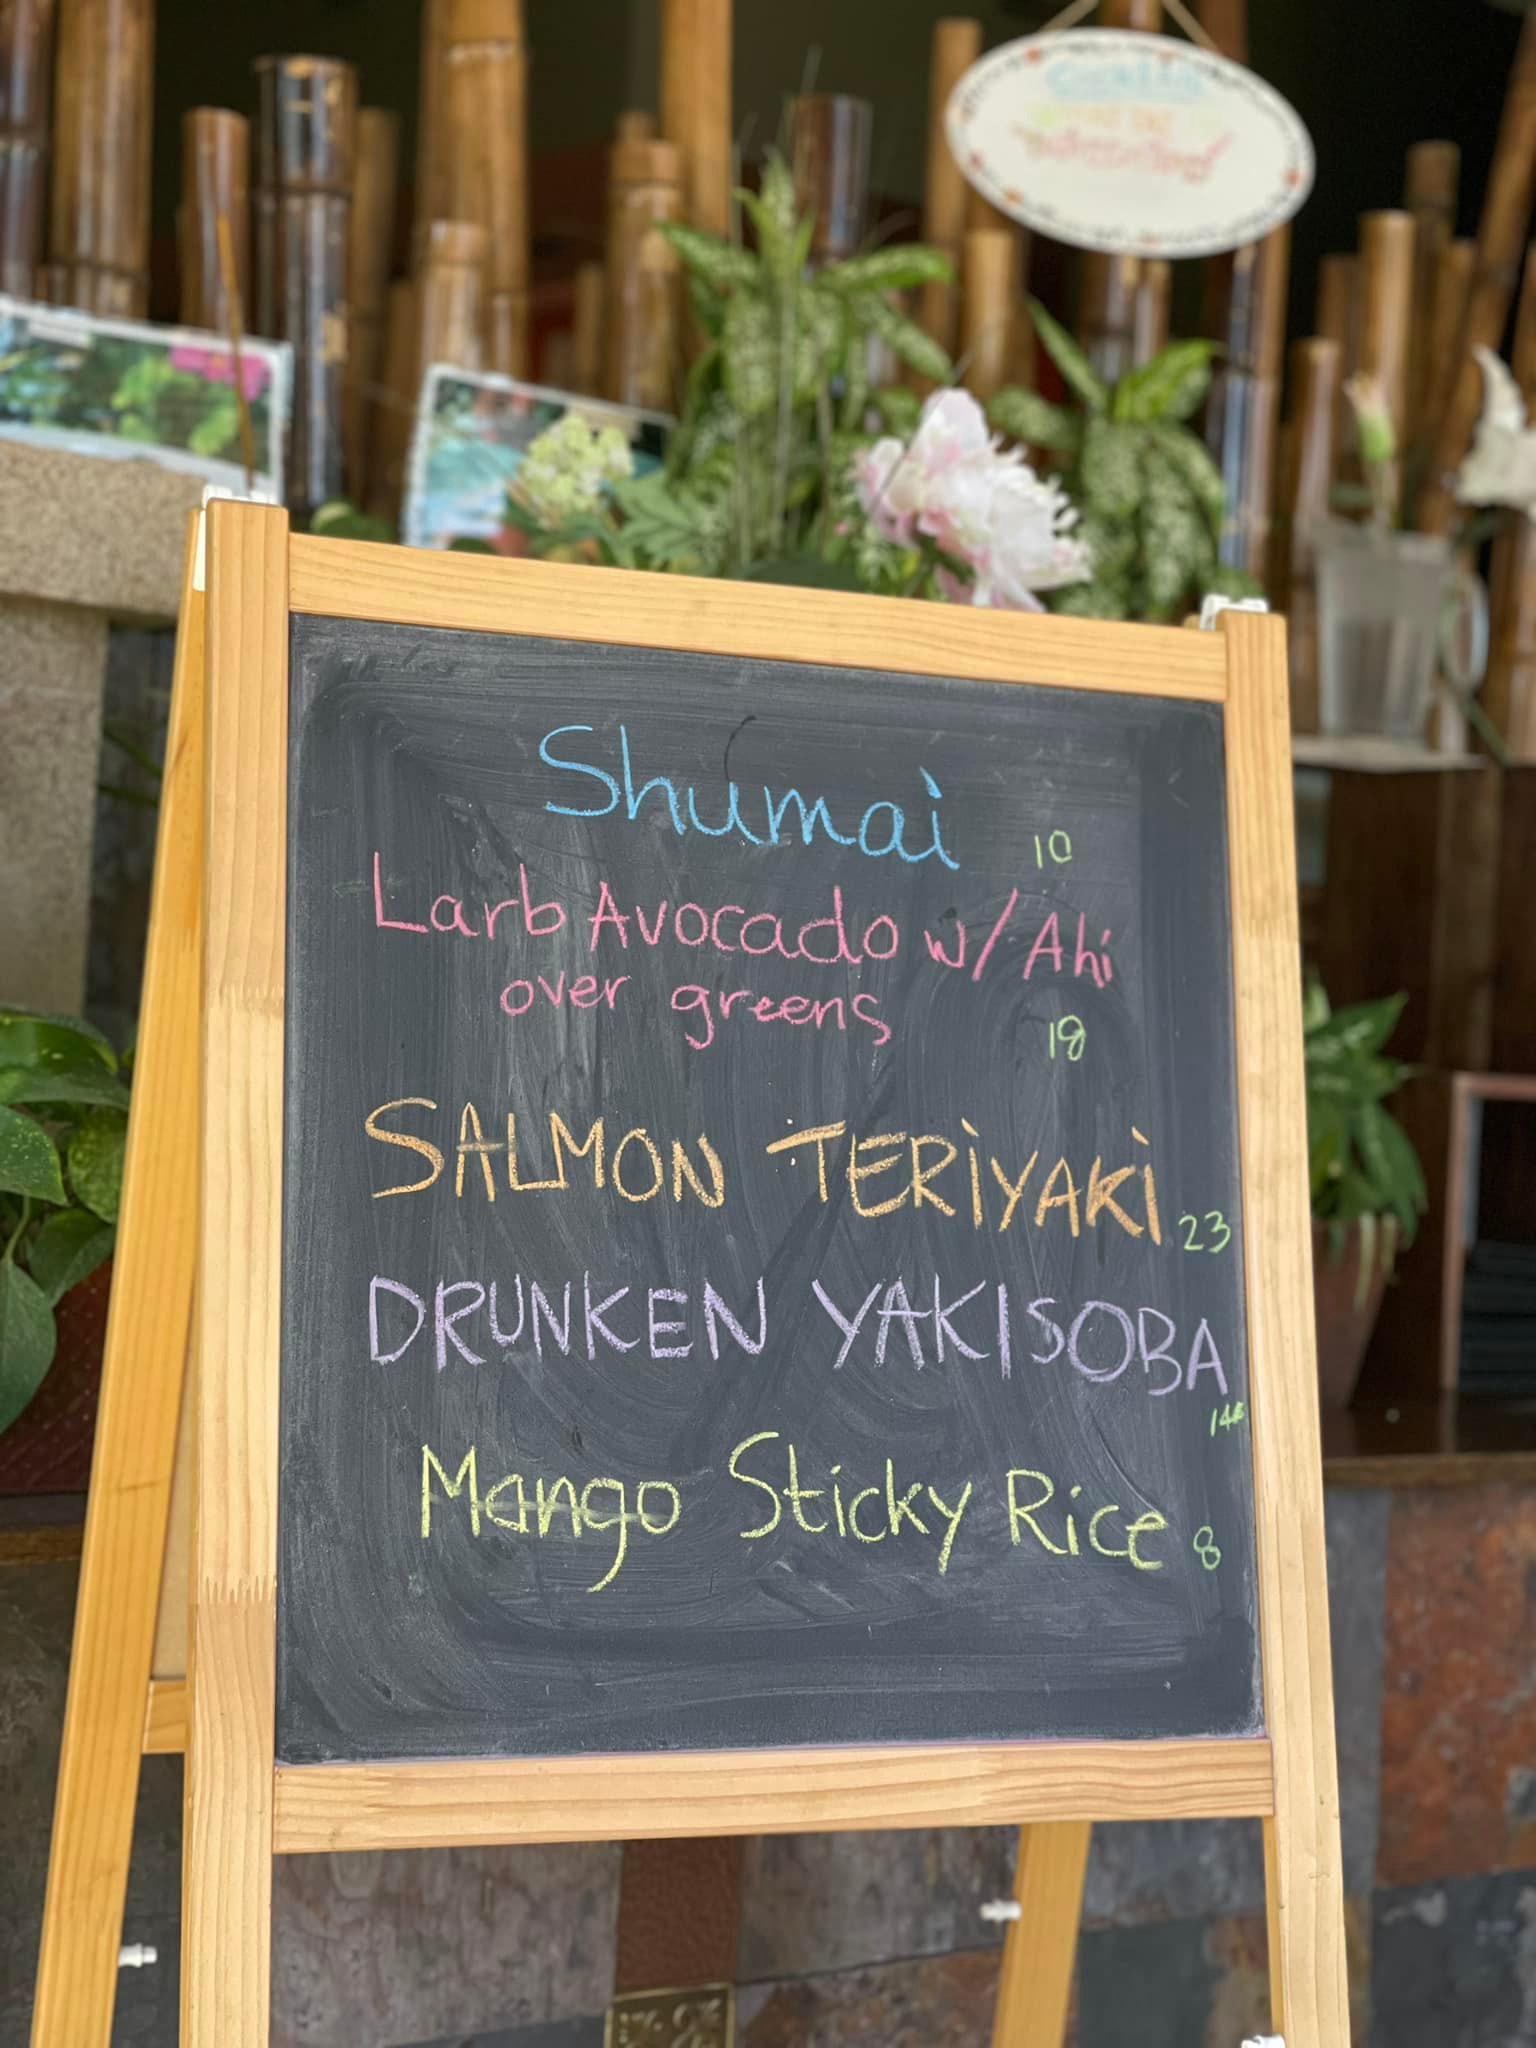 Shumai 10
Larb Avocado w/ Ahi
over greens 18
SALMON TERiYAKi 23
DRUNKEN YAKISOBA
Mango Sticky Rice 8